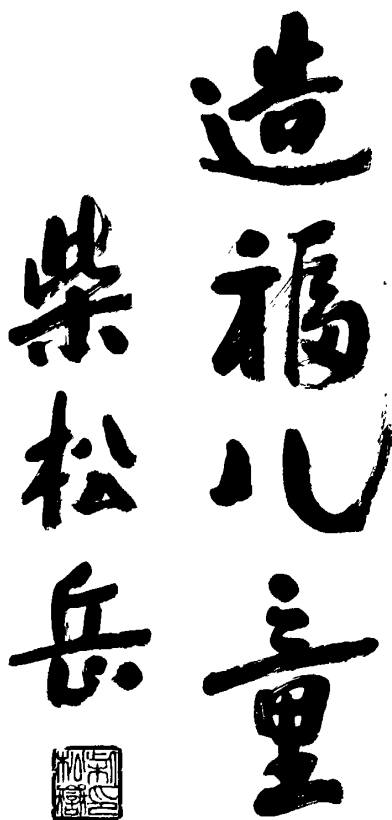 造福儿童
柴松岳